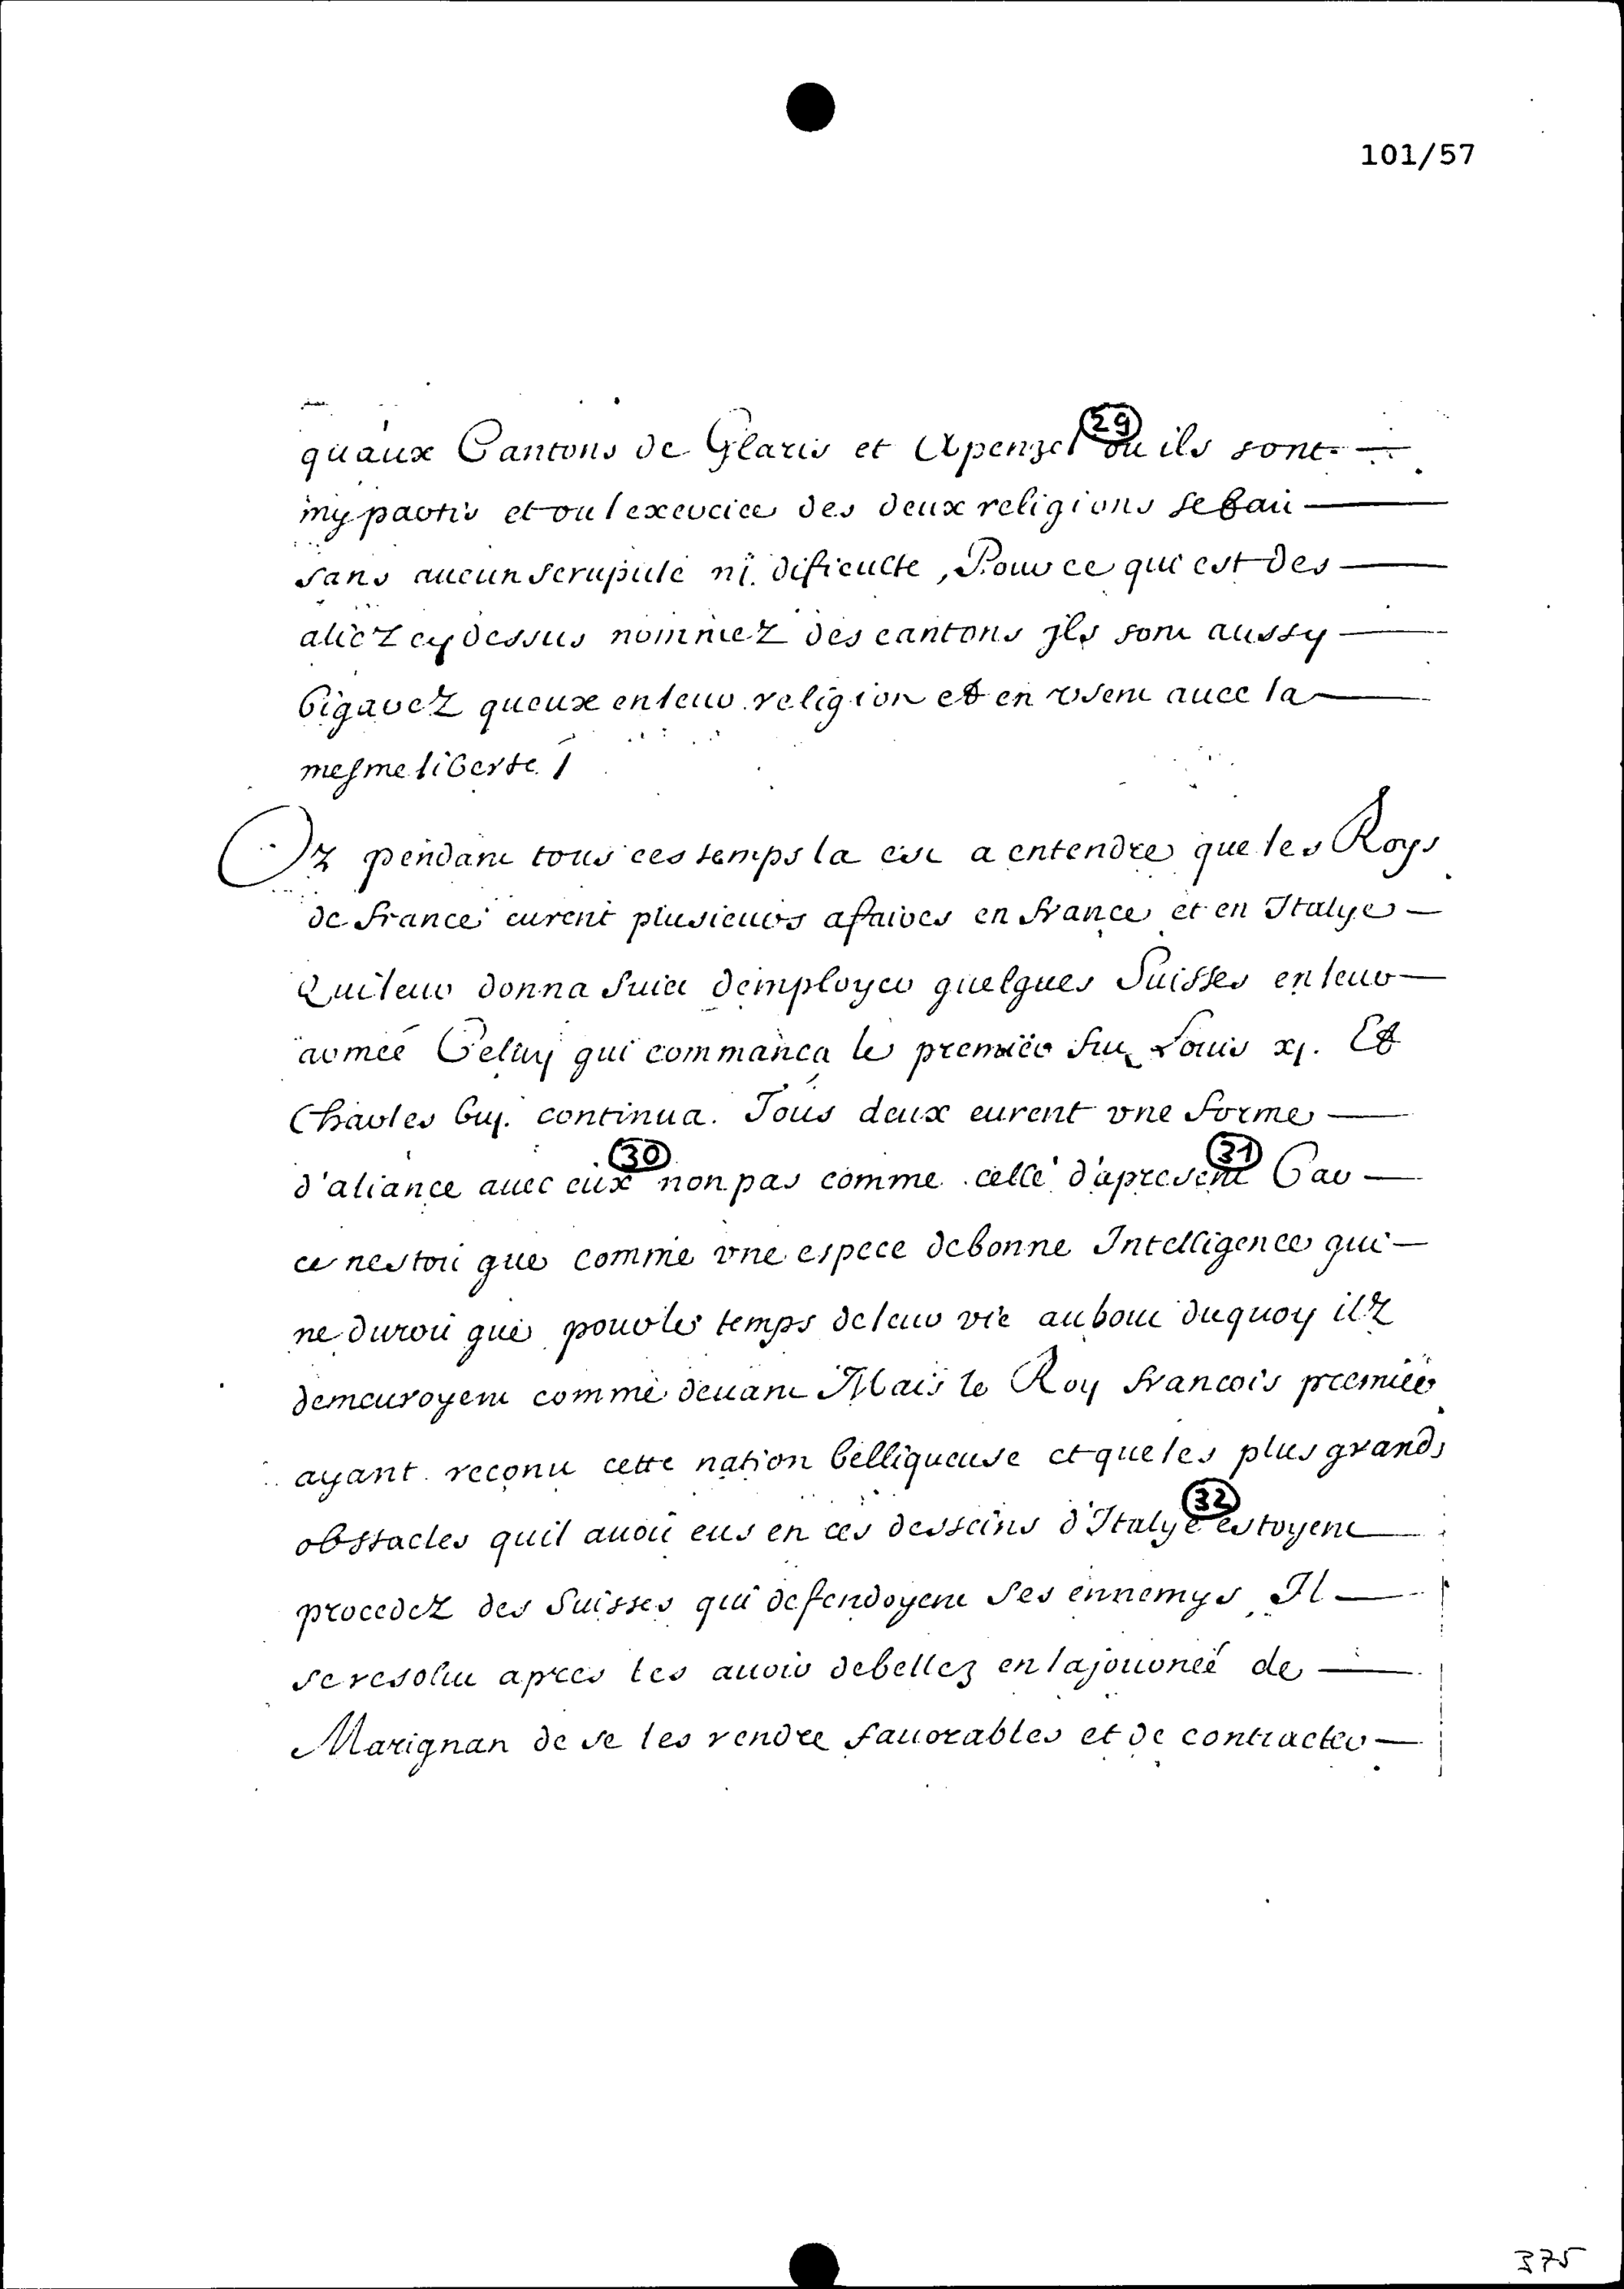 101/57
quaux Cantons de Glaris et Apenzel (29) ou ils sont
my partis et ou lexercice des deux religions se fait
sans aucun scrupule ni dificulte, Pour ce qui est des
aliez cy dessus nommez des cantons jls sont aussy
bigarez queux en leur religion et en vsent auec la
mesme liberte /
Or pendant tous ces temps la est a entendre que les Roys
de france eurent plusieurs afaires en france et en Italye
Qui leur donna suiet demployer quelques Suisses en leur
armeé Celuy qui commanca le premier fut Louis xj. Et
Charles buj. continua. Tous deux eurent vne forme
d'aliance auec eux (30) non pas comme celle d'apresent (31) Car
ce nestoit que comme vne espece de bonne Intelligence qui
ne duroit que pour le temps de leur vie au bout duquoy ilz
demeuroyent comme deuant Mais le Roy francois premier
ayant reconu cette nation belliqueuse et que les plus grands
obstacles quil auoit eus en ces desseins d'Italye (32) estoyent
procedez des Suisses qui defendoyent ses ennemys Il
se resolut apres les auoir debellez en la journeé de
Marignan de se les rendre fauorables et de contracter
375